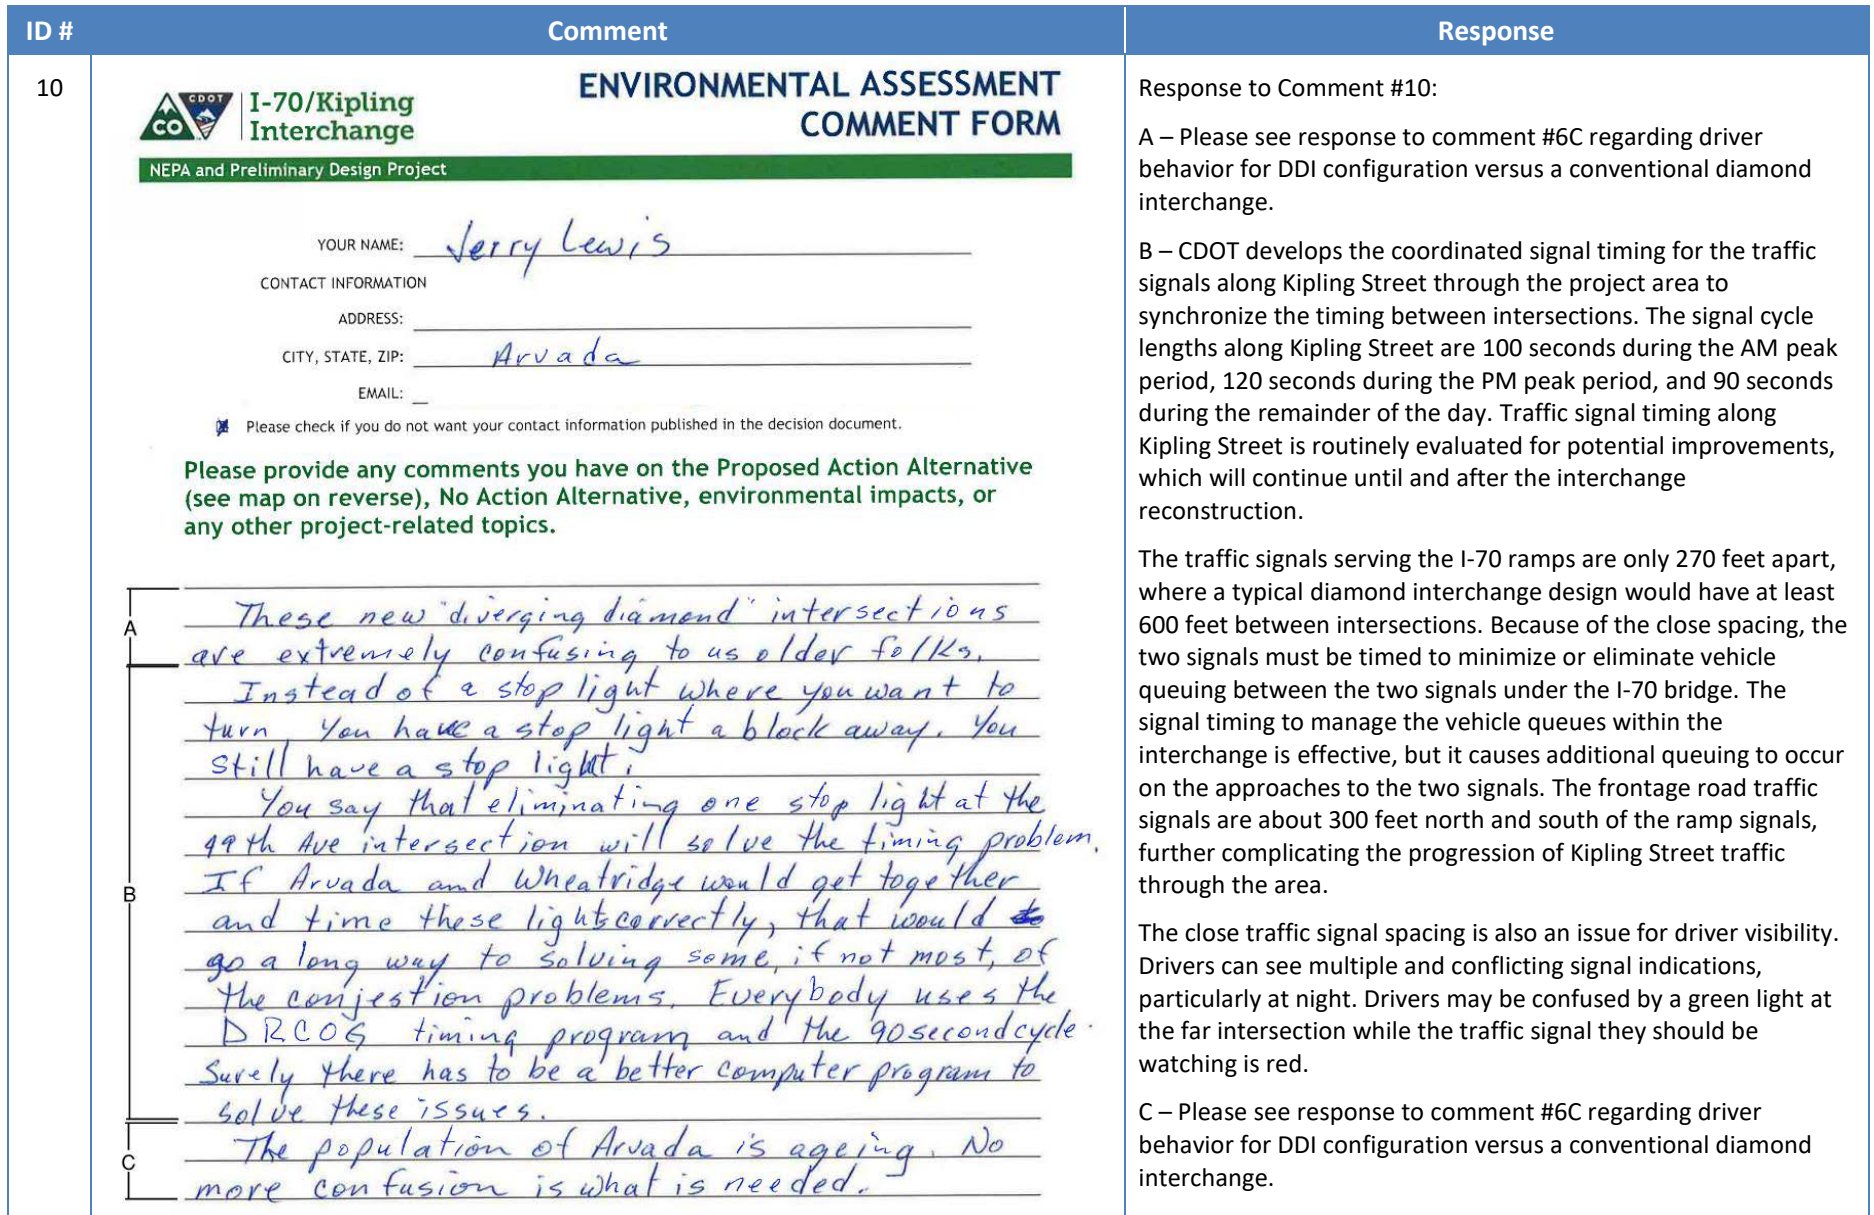 ID # Comment Response
10
CDOT
CO
I-70/Kipling
Interchange
ENVIRONMENTAL ASSESSMENT
COMMENT FORM
NEPA and Preliminary Design Project
YOUR NAME: Jerry Lewis
CONTACT INFORMATION
ADDRESS:
CITY, STATE, ZIP: Arvada
EMAIL:
Please check if you do not want your contact information published in the decision document.
Please provide any comments you have on the Proposed Action Alternative
(see map on reverse), No Action Alternative, environmental impacts, or
any other project-related topics.
A
These new "diverging diamond" intersections
are extremely confusing to us older folks.
B
Instead of a stop light where you want to
turn, You have a stop light a block away. You
still have a stop light.
You say that eliminating one stop light at the
49th Ave intersection will solve the timing problem.
If Arvada and Wheatridge would get together
and time these lights correctly, that would
go a long way to solving some, if not most, of
the conjestion problems. Everybody uses the
DRCOG timing program and the 90 second cycle.
Surely there has to be a better computer program to
solve these issues.
C
The population of Arvada is ageing. No
more confusion is what is needed.
Response to Comment #10:
A – Please see response to comment #6C regarding driver
behavior for DDI configuration versus a conventional diamond
interchange.
B – CDOT develops the coordinated signal timing for the traffic
signals along Kipling Street through the project area to
synchronize the timing between intersections. The signal cycle
lengths along Kipling Street are 100 seconds during the AM peak
period, 120 seconds during the PM peak period, and 90 seconds
during the remainder of the day. Traffic signal timing along
Kipling Street is routinely evaluated for potential improvements,
which will continue until and after the interchange
reconstruction.
The traffic signals serving the I-70 ramps are only 270 feet apart,
where a typical diamond interchange design would have at least
600 feet between intersections. Because of the close spacing, the
two signals must be timed to minimize or eliminate vehicle
queuing between the two signals under the I-70 bridge. The
signal timing to manage the vehicle queues within the
interchange is effective, but it causes additional queuing to occur
on the approaches to the two signals. The frontage road traffic
signals are about 300 feet north and south of the ramp signals,
further complicating the progression of Kipling Street traffic
through the area.
The close traffic signal spacing is also an issue for driver visibility.
Drivers can see multiple and conflicting signal indications,
particularly at night. Drivers may be confused by a green light at
the far intersection while the traffic signal they should be
watching is red.
C – Please see response to comment #6C regarding driver
behavior for DDI configuration versus a conventional diamond
interchange.